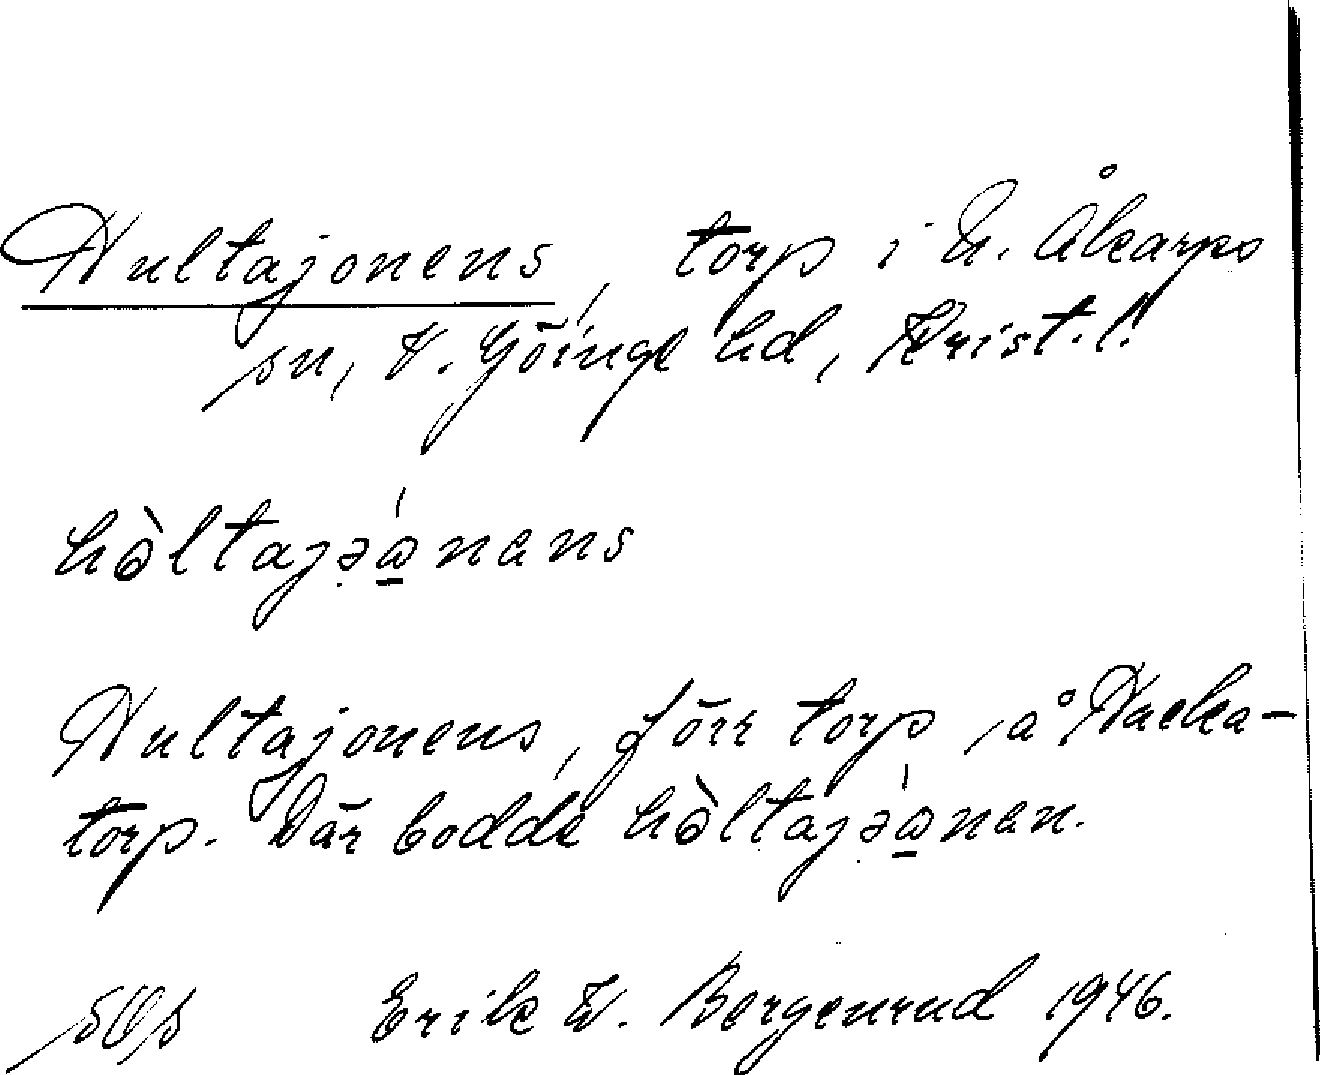 Hultajonens, torp i N. Åkarps
sn, V. Göinge hd, Krist. l.
hòltajəa̲nans
Hultajonens, förr torp å Hacka-
torp. Där bodde hòltajəa̲nan.
Erik W. Bergenrud 1946.